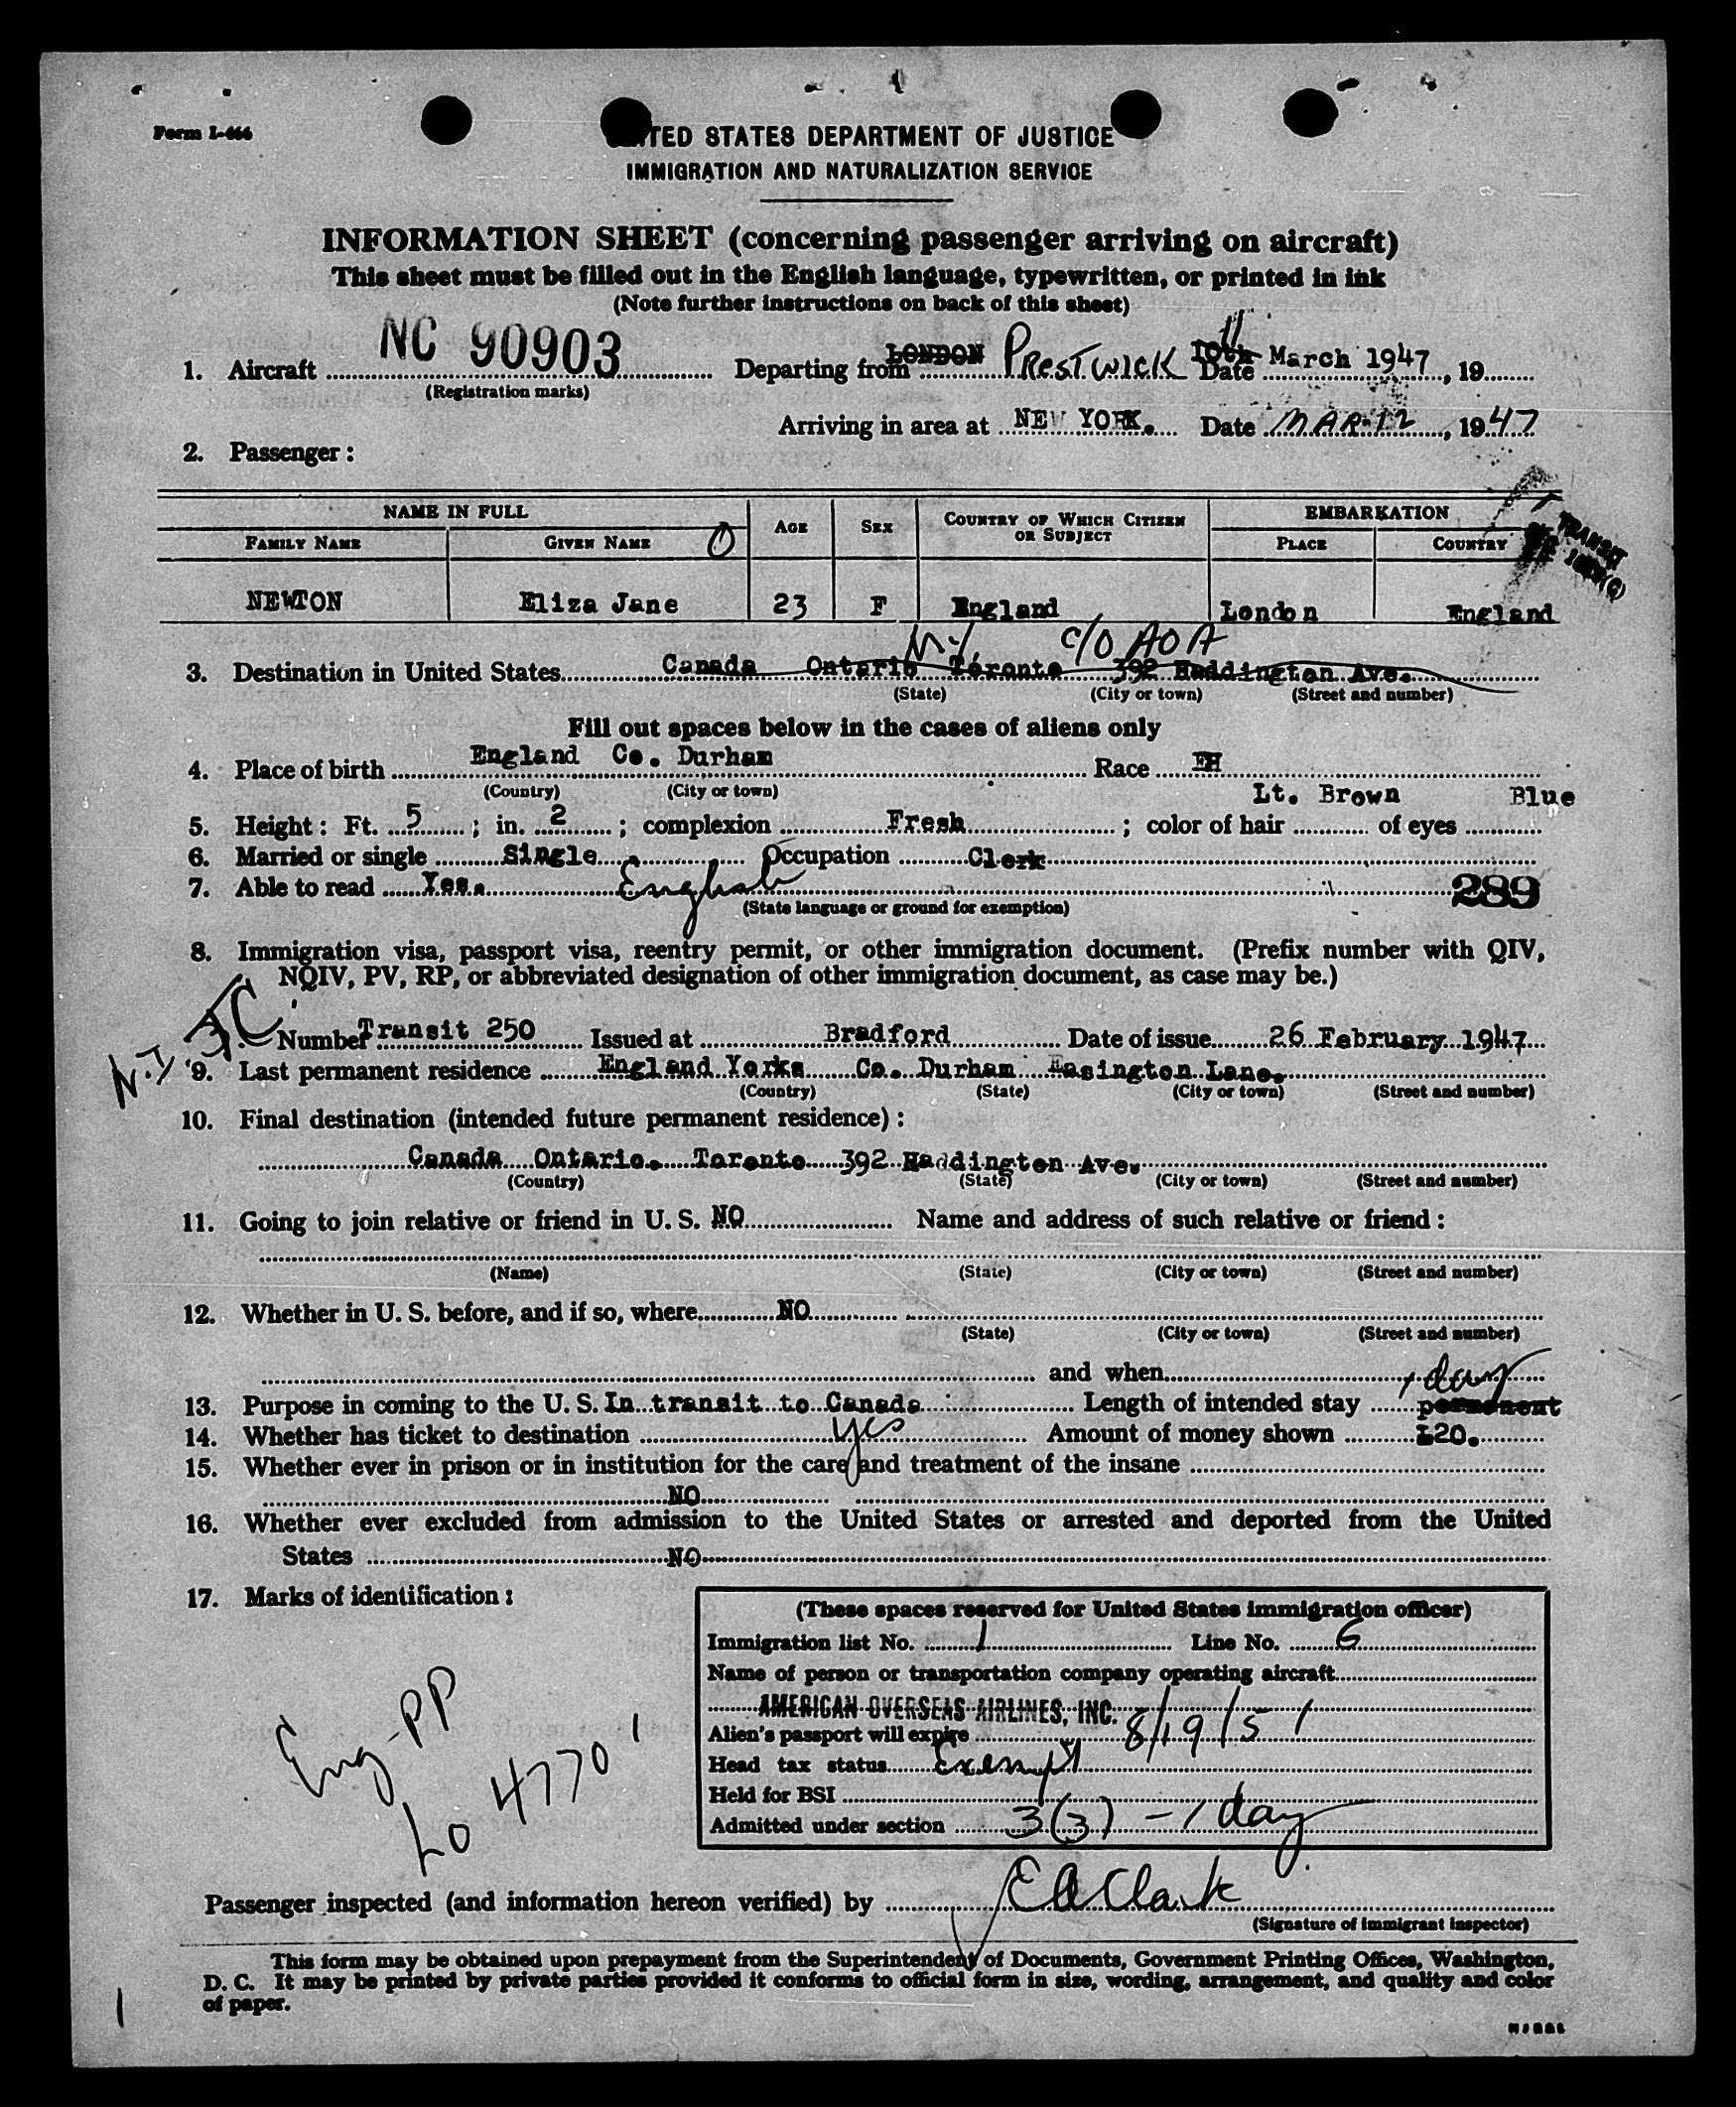 Form I-466
UNITED STATES DEPARTMENT OF JUSTICE
IMMIGRATION AND NATURALIZATION SERVICE
INFORMATION SHEET (concerning passenger arriving on aircraft)
This sheet must be filled out in the English language, typewritten, or printed in ink
(Note further instructions on back of this sheet)
1. Aircraft NC 90903 Departing from LONDON PRESTWICK 10th 11 Date March 1947, 19
(Registration marks)
Arriving in area at NEW YORK. Date MAR 12, 1947
2. Passenger:
NAME IN FULL AGE SEX COUNTRY OF WHICH CITIZEN OR SUBJECT EMBARKATION
FAMILY NAME GIVEN NAME PLACE COUNTRY
TRANSIT
NEWTON Eliza Jane 23 F England London England
N.Y. c/o AOA
3. Destination in United States Canada Ontario Toronto 392 Haddington Ave.
(State) (City or town) (Street and number)
Fill out spaces below in the cases of aliens only
4. Place of birth England Co. Durham Race
(Country) (City or town)
Lt. Brown Blue
5. Height: Ft. 5; in. 2; complexion Fresh; color of hair of eyes
6. Married or single Single. Occupation Clerk
7. Able to read Yes. English
289
(State language or ground for exemption)
8. Immigration visa, passport visa, reentry permit, or other immigration document. (Prefix number with QIV,
NQIV, PV, RP, or abbreviated designation of other immigration document, as case may be.)
Number Transit 250 Issued at Bradford Date of issue 26 February 1947
9. Last permanent residence England Yorks Co. Durham Easington Lane.
(Country) (State) (City or town) (Street and number)
10. Final destination (intended future permanent residence):
Canada Ontario. Toronto 392 Haddington Ave.
(Country) (State) (City or town) (Street and number)
11. Going to join relative or friend in U. S. NO Name and address of such relative or friend:
(Name) (State) (City or town) (Street and number)
12. Whether in U. S. before, and if so, where NO
(State) (City or town) (Street and number)
and when
1 day
13. Purpose in coming to the U. S. In transit to Canada Length of intended stay permanent
14. Whether has ticket to destination yes Amount of money shown £20.
15. Whether ever in prison or in institution for the care and treatment of the insane
NO
16. Whether ever excluded from admission to the United States or arrested and deported from the United
States NO
17. Marks of identification:
Eng-PP
Lo 47701
(These spaces reserved for United States immigration officer)
Immigration list No. 1 Line No. 6
Name of person or transportation company operating aircraft
AMERICAN OVERSEAS AIRLINES, INC.
Alien's passport will expire 8/19/51
Head tax status Exempt
Held for BSI
Admitted under section 3(3) - 1 day
Passenger inspected (and information hereon verified) by E A Clark
(Signature of immigrant inspector)
This form may be obtained upon prepayment from the Superintendent of Documents, Government Printing Offices, Washington,
D. C. It may be printed by private parties provided it conforms to official form in size, wording, arrangement, and quality and color
of paper.